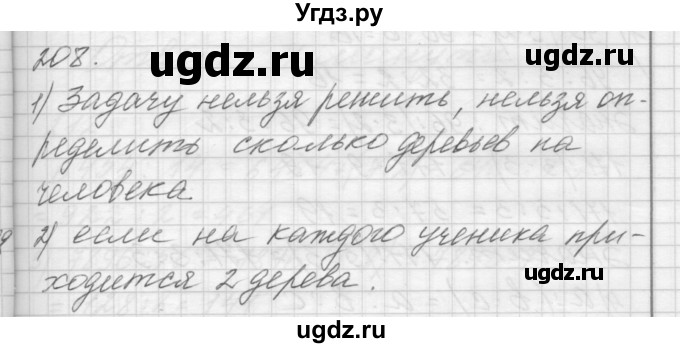 Угдз.ру
208.
ugdz.ru
ugdz.ru
1) Задачу нельзя решить, нельзя оп-
ределить сколько деревьев на
человека
2) если на каждого ученика при-
ugdz.ru
ходится 2 дерева.
ugdz.ru